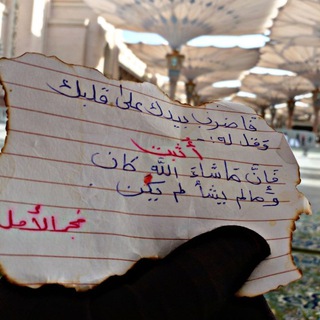 فاضرب بيدك على قلبك
وقل له:
أثبت
فإنَّ مَا شاءَ اللَّه كان
وَمالم يشأ لم يكُن
فجر الأمل